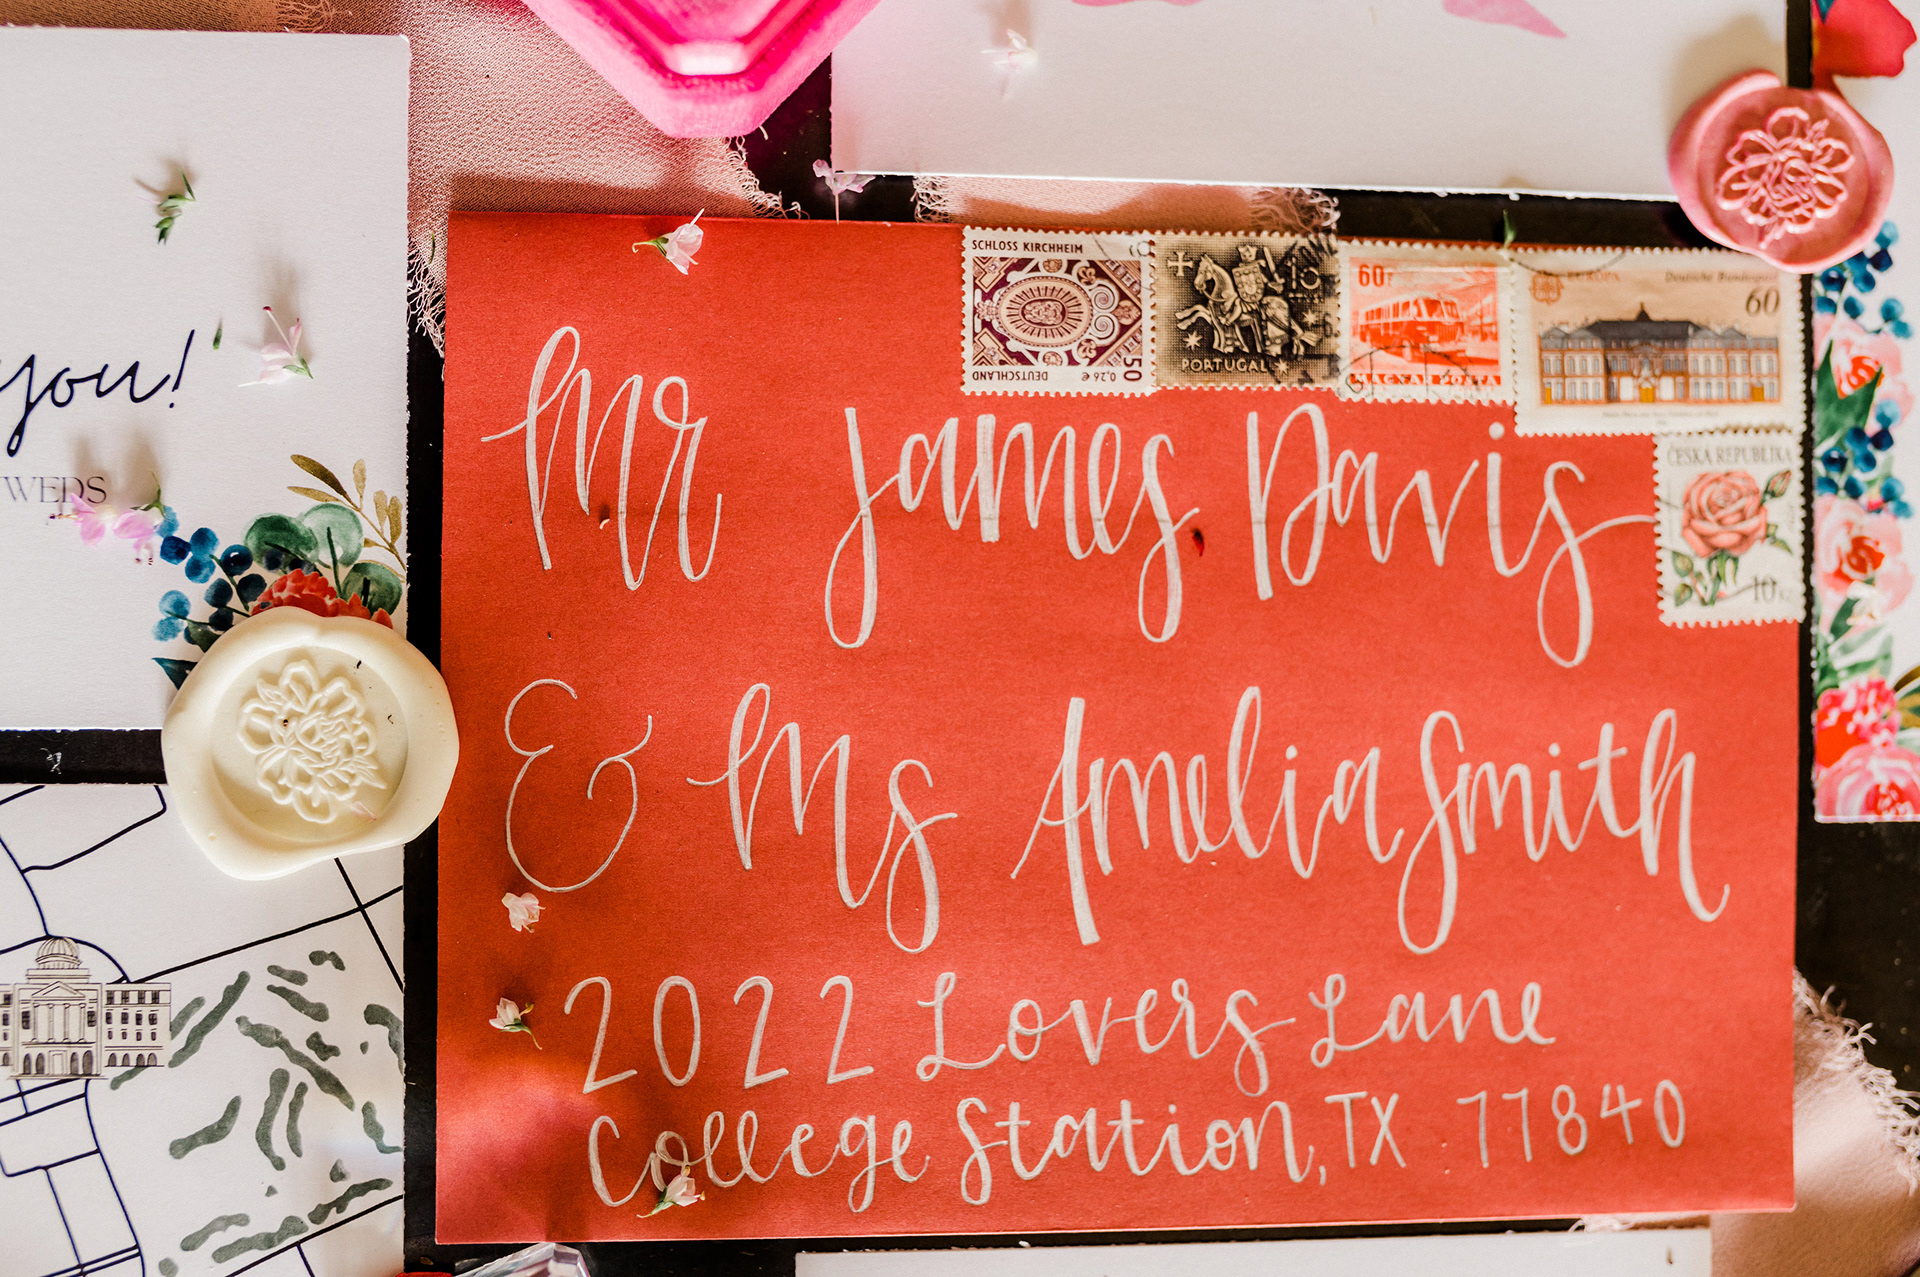 you!
WEDS
SCHLOSS KIRCHHEIM
DEUTSCHLAND
0,26 €
50
10
PORTUGAL
60f
MAGYAR POSTA
EUROPA
Deutsche Bundespost
60
ČESKÁ REPUBLIKA
10 Kč
Mr James Davis
& Ms Amelia Smith
2022 Lovers Lane
College Station, TX 77840